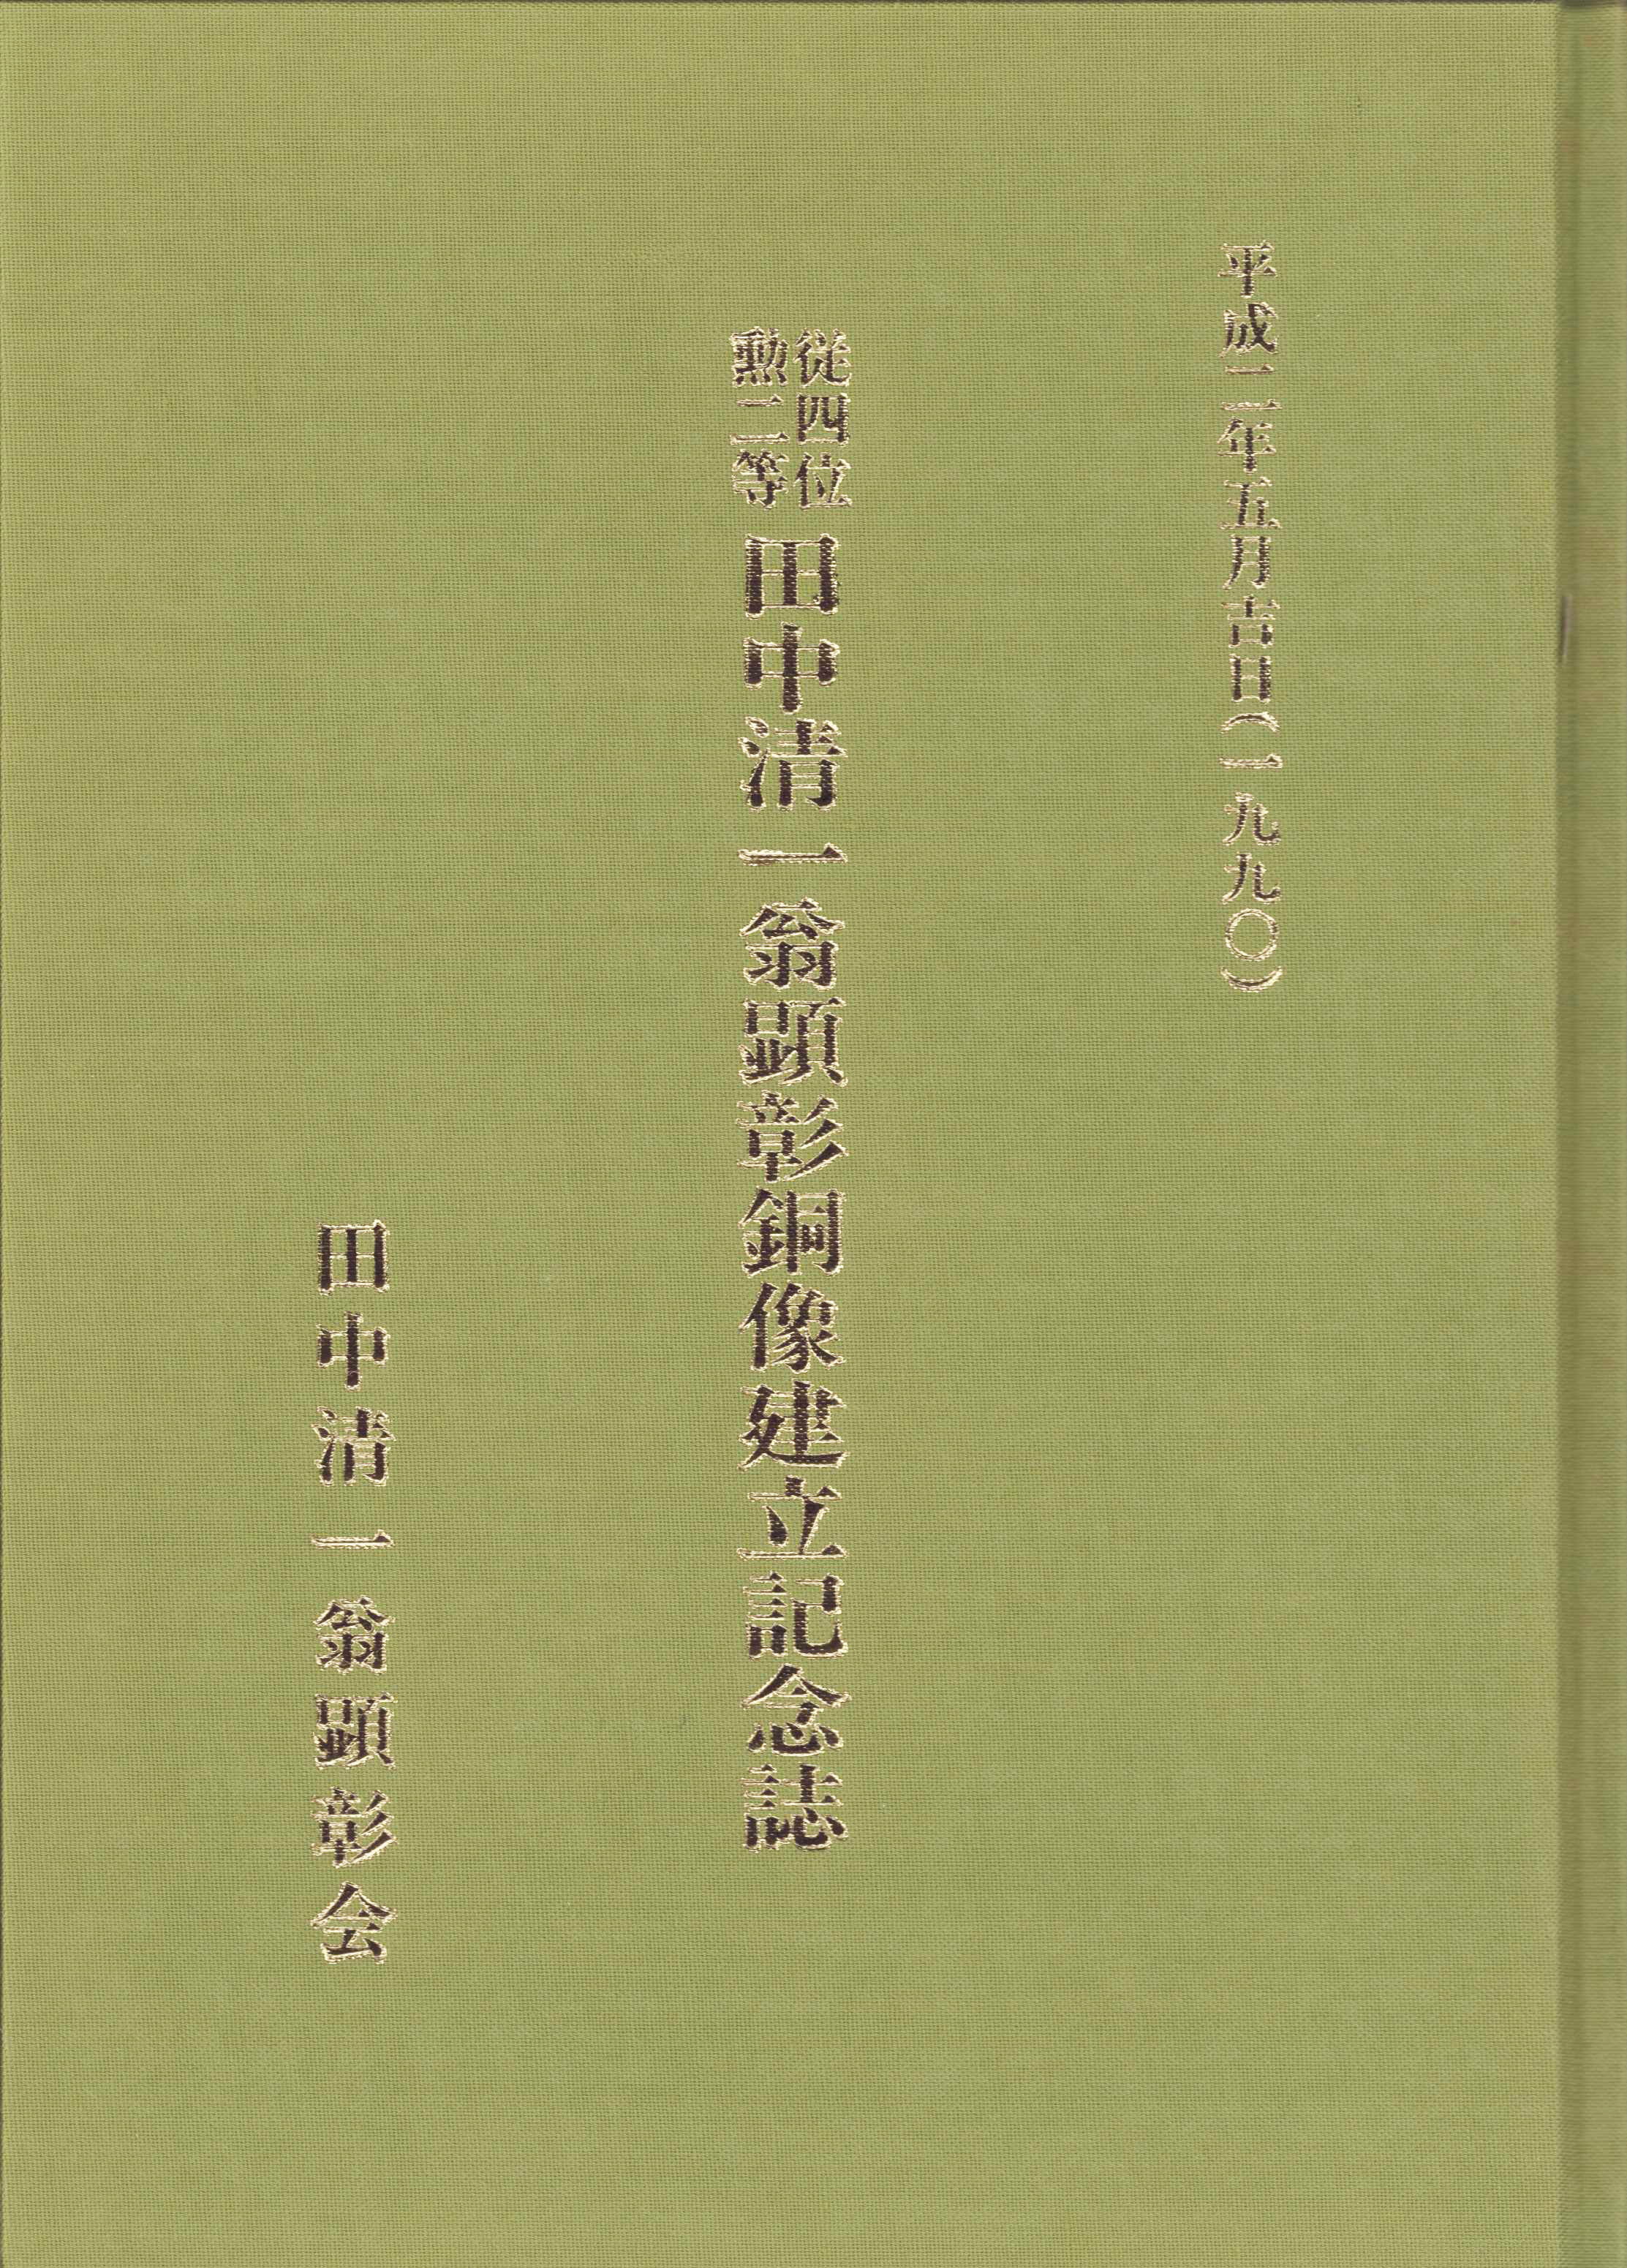 平成二年五月吉日(一九九〇)
従四位
勲二等
田中清一翁顕彰銅像建立記念誌
田中清一翁顕彰会